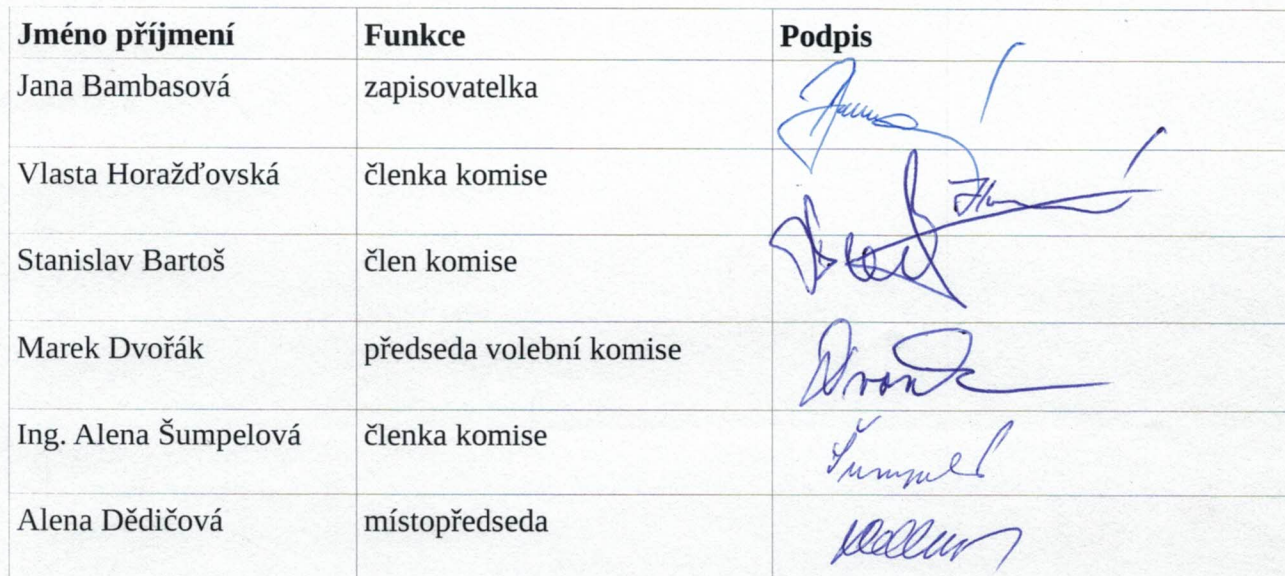 Jméno příjmení Funkce Podpis
Jana Bambasová zapisovatelka
Vlasta Horažďovská členka komise
Stanislav Bartoš člen komise
Marek Dvořák předseda volební komise
Ing. Alena Šumpelová členka komise
Alena Dědičová místopředseda